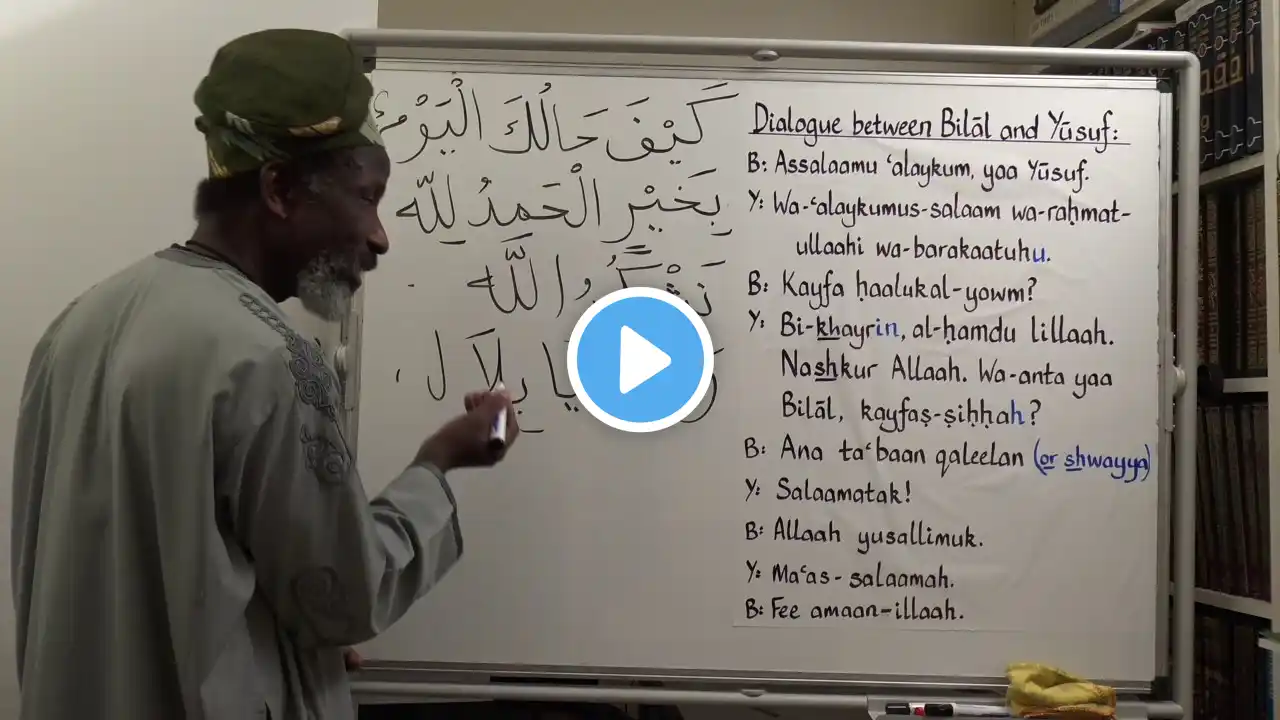 كَيْفَ حَالُكَ الْيَوْمَ
بِخَيْرٍ الْحَمْدُ لِلّٰه
نَشْكُرُ اللّٰه
يَا بِلَا ل ،
Dialogue between Bilāl and Yūsuf:
B: Assalaamu ‘alaykum, yaa Yūsuf.
Y: Wa-‘alaykumus-salaam wa-raḥmat-
ullaahi wa-barakaatuhu.
B: Kayfa ḥaalukal-yowm?
Y: Bi-khayrin, al-ḥamdu lillaah.
Nashkur Allaah. Wa-anta yaa
Bilāl, kayfaṣ-ṣiḥḥah?
B: Ana ta‘baan qaleelan (or shwayya)
Y: Salaamatak!
B: Allaah yusallimuk.
Y: Ma‘as-salaamah.
B: Fee amaan-illaah.